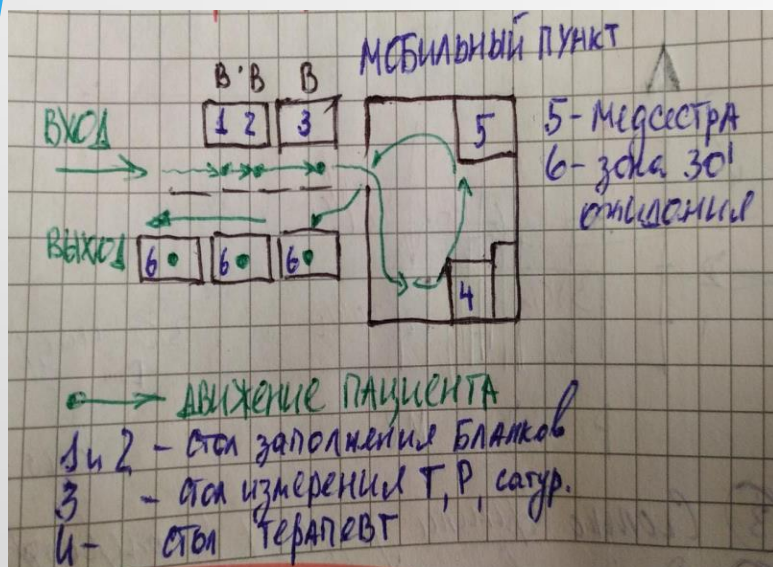 МОБИЛЬНЫЙ ПУНКТ
В В В
ВХОД
1 2 3
5
5 - Медсестра
6 - зона 30'
ожидания
ВЫХОД
6 6 6
4
ДВИЖЕНИЕ ПАЦИЕНТА
1 и 2 - стол заполнения Бланков
3 - стол измерения Т, Р, сатур.
4 - стол терапевт